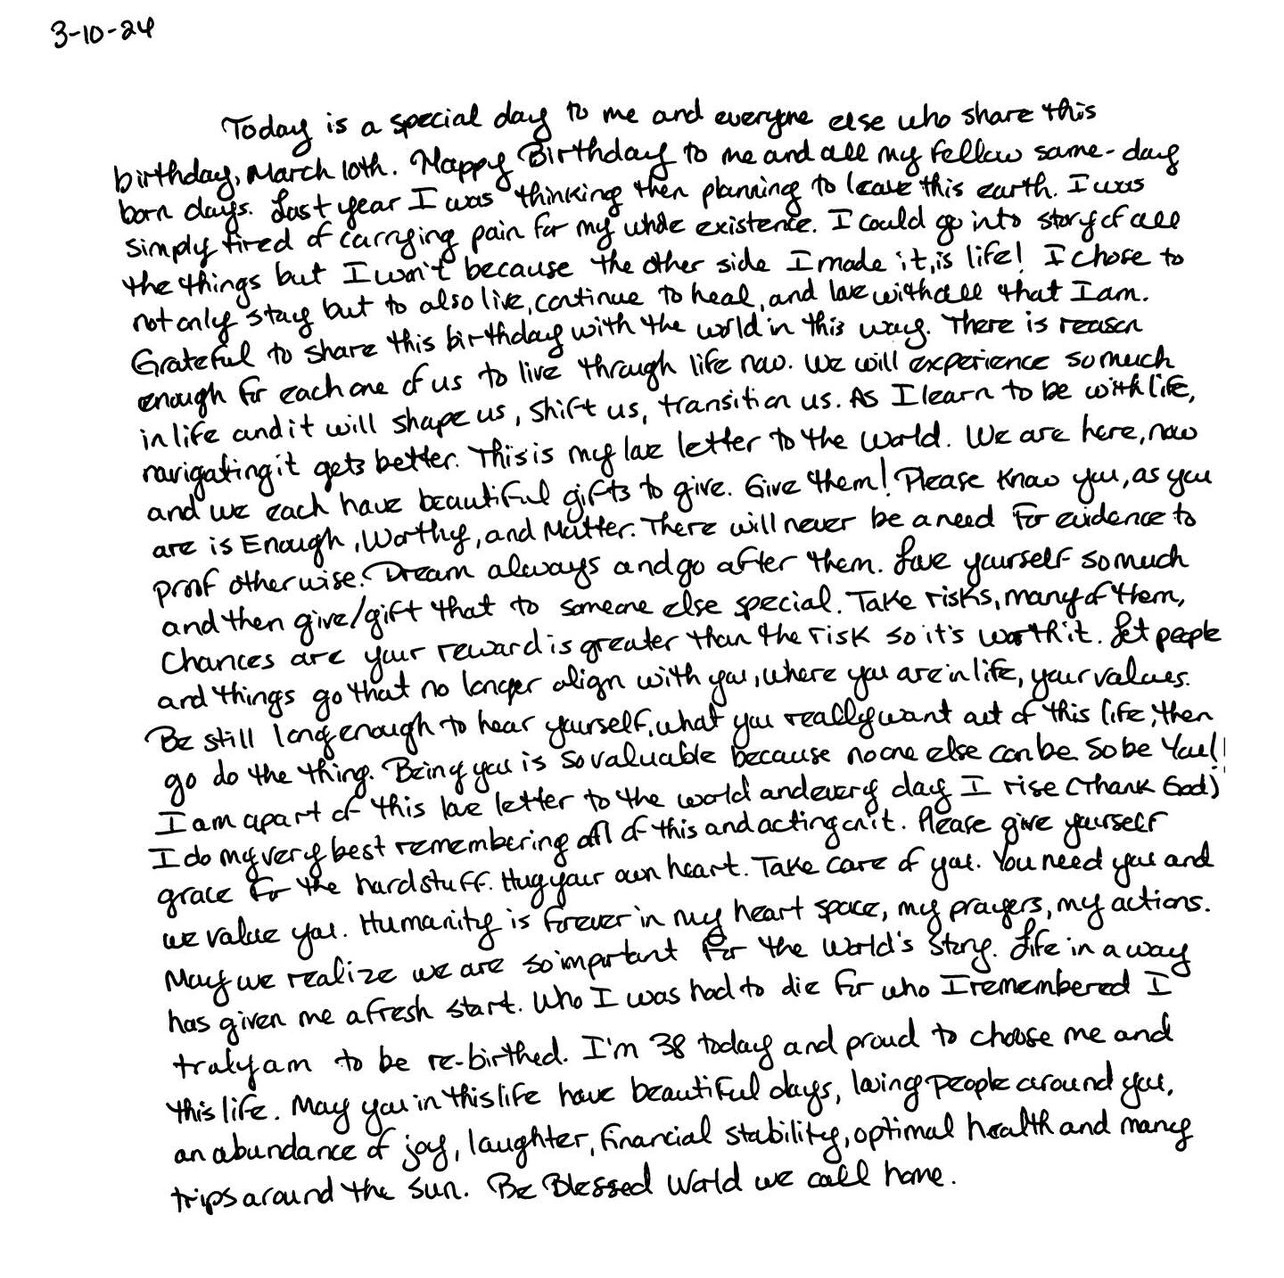 3-10-24
Today is a special day to me and everyone else who share this
birthday, March 10th. Happy Birthday to me and all my fellow same-day
born days. Last year I was thinking then planning to leave this earth. I was
simply tired of carrying pain for my whole existence. I could go into story of all
the things but I won't because the other side I made it, is life! I chose to
not only stay but to also live, continue to heal, and love with all that I am.
Grateful to share this birthday with the world in this way. There is reason
enough for each one of us to live through life now. We will experience so much
in life and it will shape us, shift us, transition us. As I learn to be with life,
navigating it gets better. This is my love letter to the world. We are here, now
and we each have beautiful gifts to give. Give them! Please know you, as you
are is Enough, Worthy, and Matter. There will never be a need for evidence to
proof otherwise. Dream always and go after them. Love yourself so much
and then give/gift that to someone else special. Take risks, many of them,
Chances are your reward is greater than the risk so it's worth it. Let people
and things go that no longer align with you, where you are in life, your values.
Be still long enough to hear yourself, what you really want out of this life, then
go do the thing. Being you is so valuable because no one else can be. So be You!!
I am apart of this love letter to the world and every day I rise (Thank God)
I do my very best remembering all of this and acting on it. Please give yourself
grace for the hard stuff. Hug your own heart. Take care of you. You need you and
we value you. Humanity is forever in my heart space, my prayers, my actions.
May we realize we are so important for the world's story. Life in a way
has given me a fresh start. Who I was had to die for who I remembered I
truly am to be re-birthed. I'm 38 today and proud to choose me and
this life. May you in this life have beautiful days, loving people around you,
an abundance of joy, laughter, financial stability, optimal health and many
trips around the sun. Be Blessed World we call home.